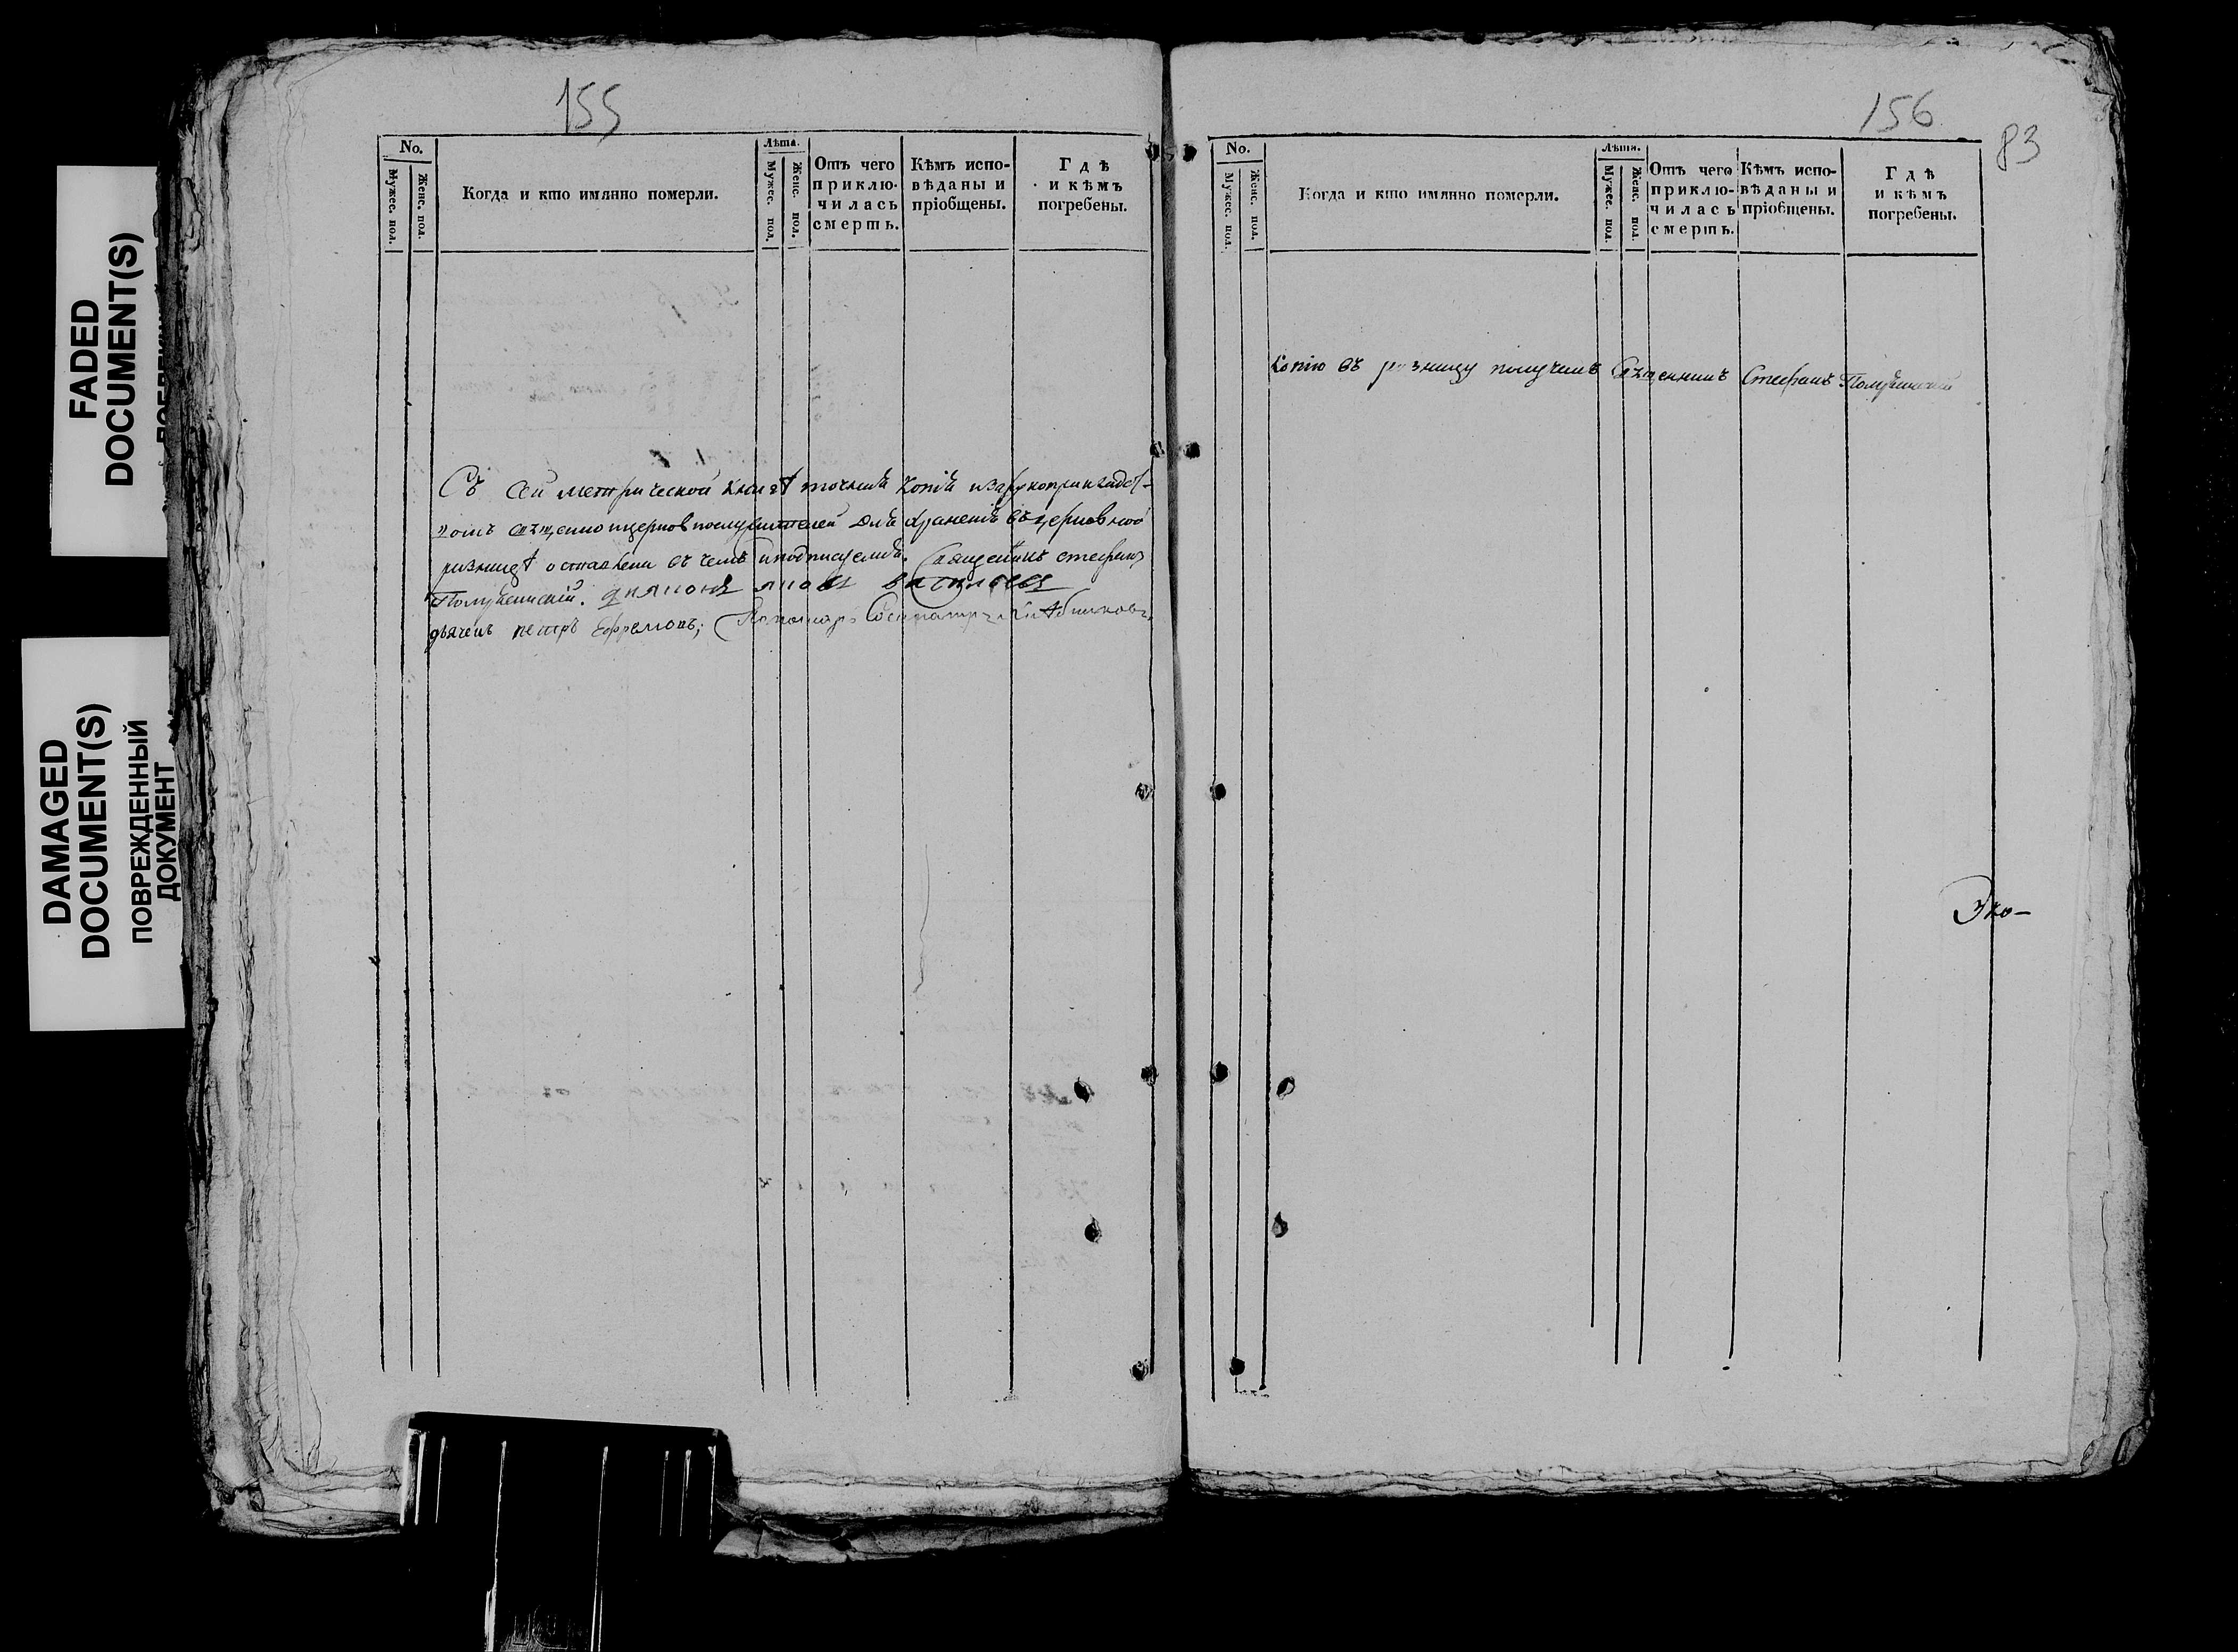 FADED
DOCUMENT(S)
DAMAGED
DOCUMENT(S)
ПОВРЕЖДЕННЫЙ
ДОКУМЕНТ
155
No.
Мужес. пол.
Женс. пол.
Когда и кто имянно померли.
Лѣта.
Мужес. пол.
Женс. пол.
Отъ чего
приклю-
чилась
смерть.
Кѣмъ испо-
вѣданы и
пріобщены.
Гдѣ
и кѣмъ
погребены.
Съ сей метрической книгѣ точная копія
церковнослужителей для храненія въ церковной
ризницѣ оставлена въ чемъ и подписуемся. Священникъ Стефанъ
диаконъ яковъ василевъ
дьячекъ петръ Ефремовъ; Пономарь
156
83
No.
Мужес. пол.
Женс. пол.
Когда и кто имянно померли.
Лѣта.
Мужес. пол.
Женс. пол.
Отъ чего
приклю-
чилась
смерть.
Кѣмъ испо-
вѣданы и
пріобщены.
Гдѣ
и кѣмъ
погребены.
Копію въ ризницу получилъ Священникъ Стефанъ